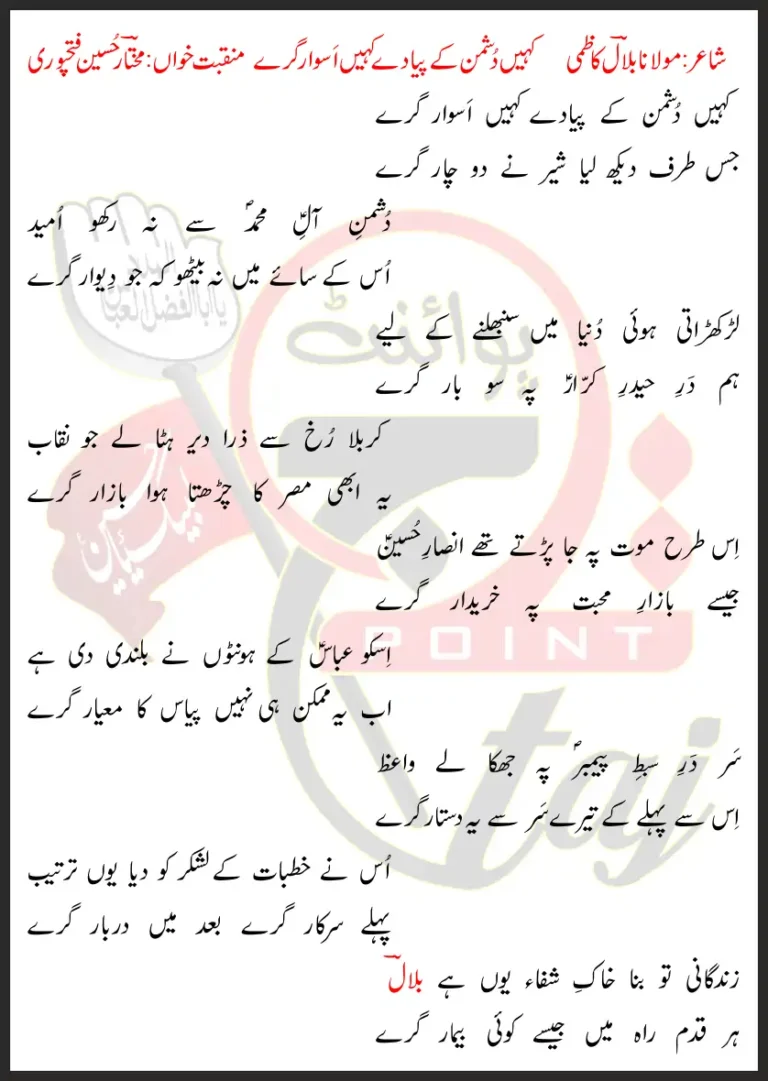 شاعر: مولانا بلالؔ کاظمی کہیں دُشمن کے پیادے کہیں اَسوار گرے منقبت خواں: مختارؔ حُسین فتحپوری
کہیں دُشمن کے پیادے کہیں اَسوار گرے
جس طرف دیکھ لیا شیر نے دو چار گرے
دُشمنِ آلِؑ محمدؐ سے نہ رکھو اُمید
اُس کے سائے میں نہ بیٹھو کہ جو دِیوار گرے
لڑکھڑاتی ہوئی دُنیا میں سنبھلنے کے لیے
ہم دَرِ حیدرِ کرّارؑ پہ سو بار گرے
کربلا رُخ سے ذرا دیر ہٹا لے جو نقاب
یہ ابھی مصر کا چڑھتا ہوا بازار گرے
اِس طرح موت پہ جا پڑتے تھے انصارِ حُسینؑ
جیسے بازارِ محبت پہ خریدار گرے
اِسکو عباسؑ کے ہونٹوں نے بلندی دی ہے
اب یہ ممکن ہی نہیں پیاس کا معیار گرے
سَر دَرِ سبطِ پیمبرؐ پہ جھکا لے واعظ
اِس سے پہلے کے تیرے سَر سے یہ دستار گرے
اُس نے خطبات کے لشکر کو دیا یوں ترتیب
پہلے سرکار گرے بعد میں دربار گرے
زندگانی تو بنا خاکِ شفاء یوں ہے بلالؔ
ہر قدم راہ میں جیسے کوئی بیمار گرے
پوائنٹ
یا ابالفضل العباس
لبیک یا حسین
POINT
taj